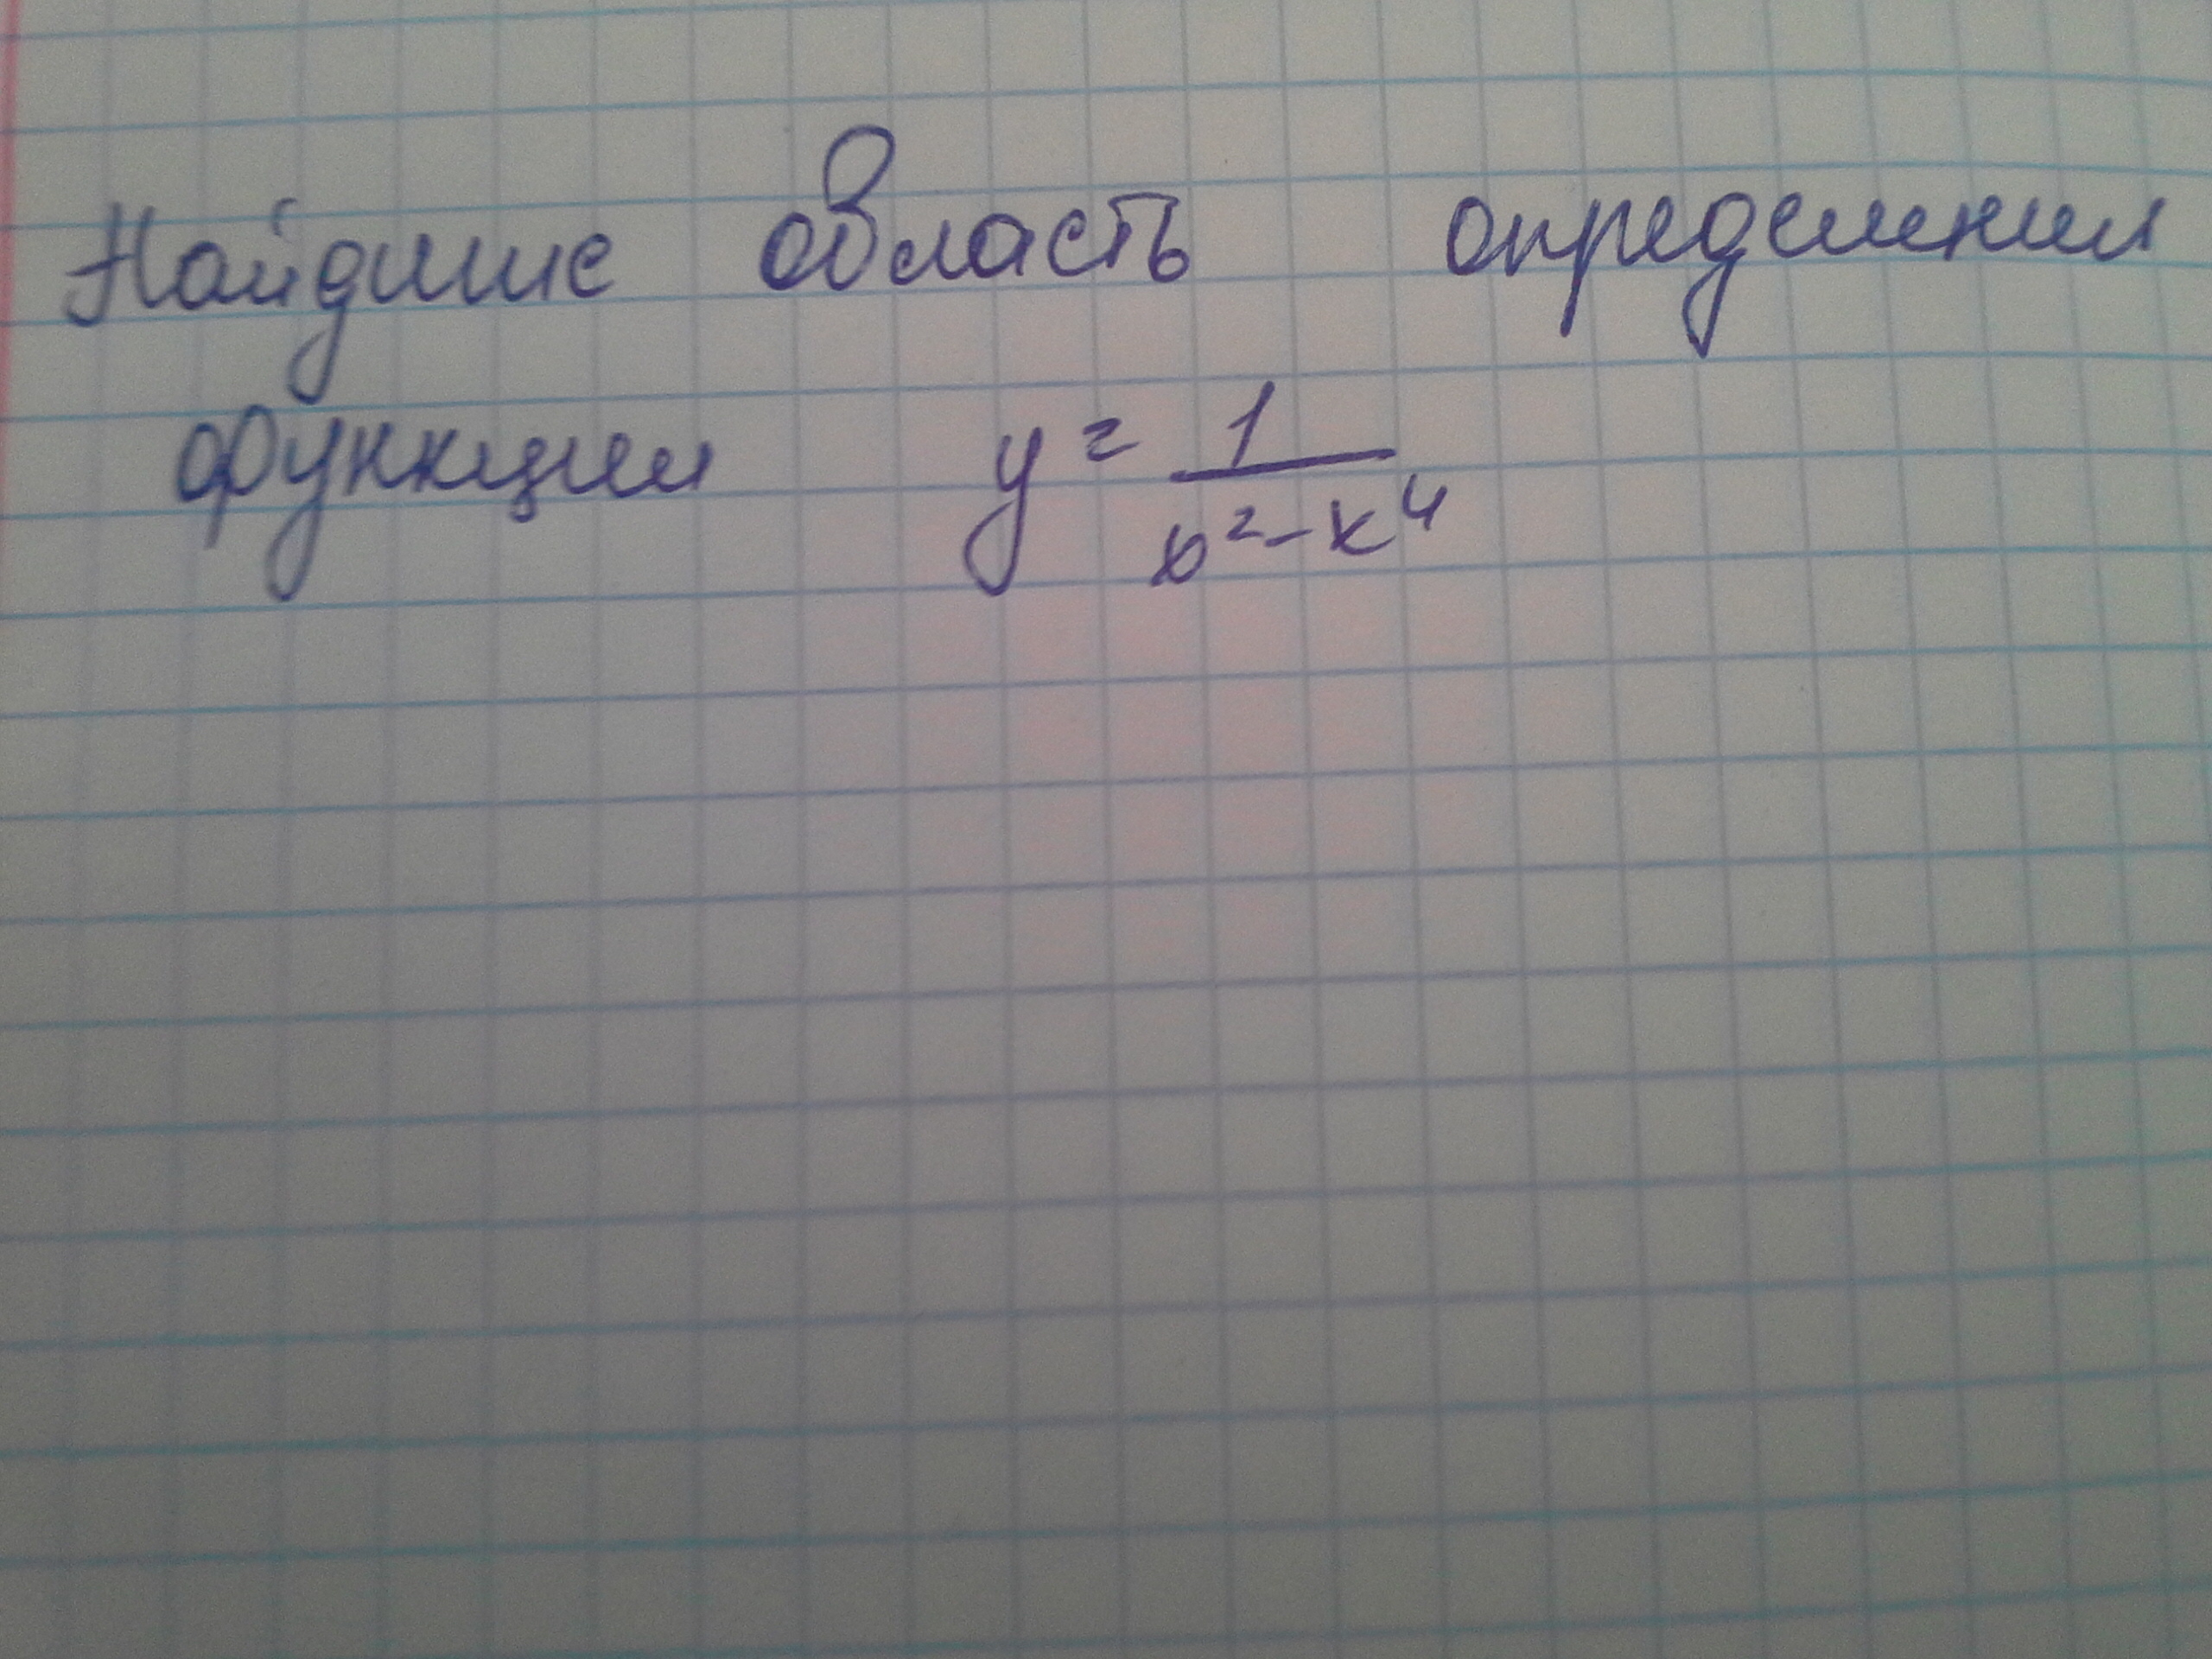 Найдите область определения
функции y = 1/x²-x⁴